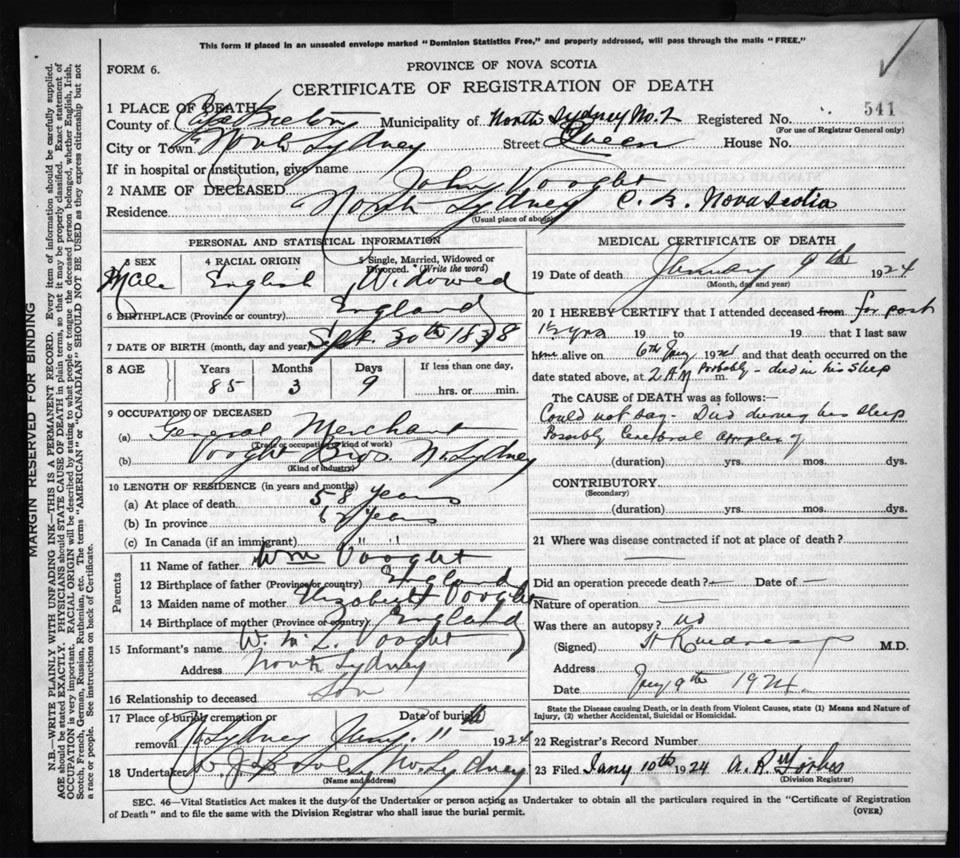 This form if placed in an unsealed envelope marked "Dominion Statistics Free," and properly addressed, will pass through the mails "FREE."
FORM 6.
PROVINCE OF NOVA SCOTIA
CERTIFICATE OF REGISTRATION OF DEATH
1 PLACE OF DEATH
541
County of Cape Breton Municipality of North Sydney No. 2 Registered No.
(For use of Registrar General only)
City or Town North Sydney Street Queen House No.
If in hospital or institution, give name
2 NAME OF DECEASED John Vooght
Residence North Sydney C. B. Nova Scotia
(Usual place of abode)
PERSONAL AND STATISTICAL INFORMATION
3 SEX 4 RACIAL ORIGIN 5 Single, Married, Widowed or Divorced. (Write the word)
Male English Widowed
6 BIRTHPLACE (Province or country) England
7 DATE OF BIRTH (month, day and year) Sept. 30th 1838
8 AGE Years Months Days If less than one day,
85 3 9 hrs. or min.
9 OCCUPATION OF DECEASED
(a) General Merchant
(Trade or occupation or kind of work)
(b) Vooght Bros. N. Sydney
(Kind of industry)
10 LENGTH OF RESIDENCE (in years and months)
(a) At place of death 58 years
(b) In province 62 years
(c) In Canada (if an immigrant) " "
Parents
11 Name of father Wm Vooght
12 Birthplace of father (Province or country) England
13 Maiden name of mother Elizabeth Vooght
14 Birthplace of mother (Province or country) England
15 Informant's name W. M. Vooght
Address North Sydney
16 Relationship to deceased Son
17 Place of burial, cremation or removal Date of burial
N. Sydney Jany. 11th 1924
18 Undertaker No. Sydney
(Name and address)
MEDICAL CERTIFICATE OF DEATH
19 Date of death January 9th 1924
(Month, day and year)
20 I HEREBY CERTIFY that I attended deceased from for past
1½ yrs 19 to 19 that I last saw
him alive on 6th Jany 1924 and that death occurred on the
date stated above, at 2 AM m. Probably - died in his sleep
The CAUSE of DEATH was as follows:—
Could not say - Died during his sleep
Possibly Cerebral apoplexy
(duration) yrs. mos. dys.
CONTRIBUTORY
(Secondary)
(duration) yrs. mos. dys.
21 Where was disease contracted if not at place of death?
Did an operation precede death? — Date of —
Nature of operation —
Was there an autopsy? no
(Signed) M.D.
Address
Date Jany 9th 1924.
State the Disease causing Death, or in death from Violent Causes, state (1) Means and Nature of Injury, (2) whether Accidental, Suicidal or Homicidal.
22 Registrar's Record Number
23 Filed Jany 10th 1924 A. R. Forbes
(Division Registrar)
SEC. 46—Vital Statistics Act makes it the duty of the Undertaker or person acting as Undertaker to obtain all the particulars required in the "Certificate of Registration
of Death" and to file the same with the Division Registrar who shall issue the burial permit.
(OVER)
MARGIN RESERVED FOR BINDING
N.B.—WRITE PLAINLY WITH UNFADING INK—THIS IS A PERMANENT RECORD. Every item of information should be carefully supplied.
AGE should be stated EXACTLY. PHYSICIANS should STATE CAUSE OF DEATH in plain terms, so that it may be properly classified. Exact statement of
OCCUPATION is very important. RACIAL ORIGIN will be described by stating to what people or tongue the deceased person belonged, whether English, Irish,
Scotch, French, German, Russian, Ruthenian, etc. The terms "AMERICAN" or "CANADIAN" SHOULD NOT BE USED as they express citizenship but not
a race or people. See instructions on back of Certificate.